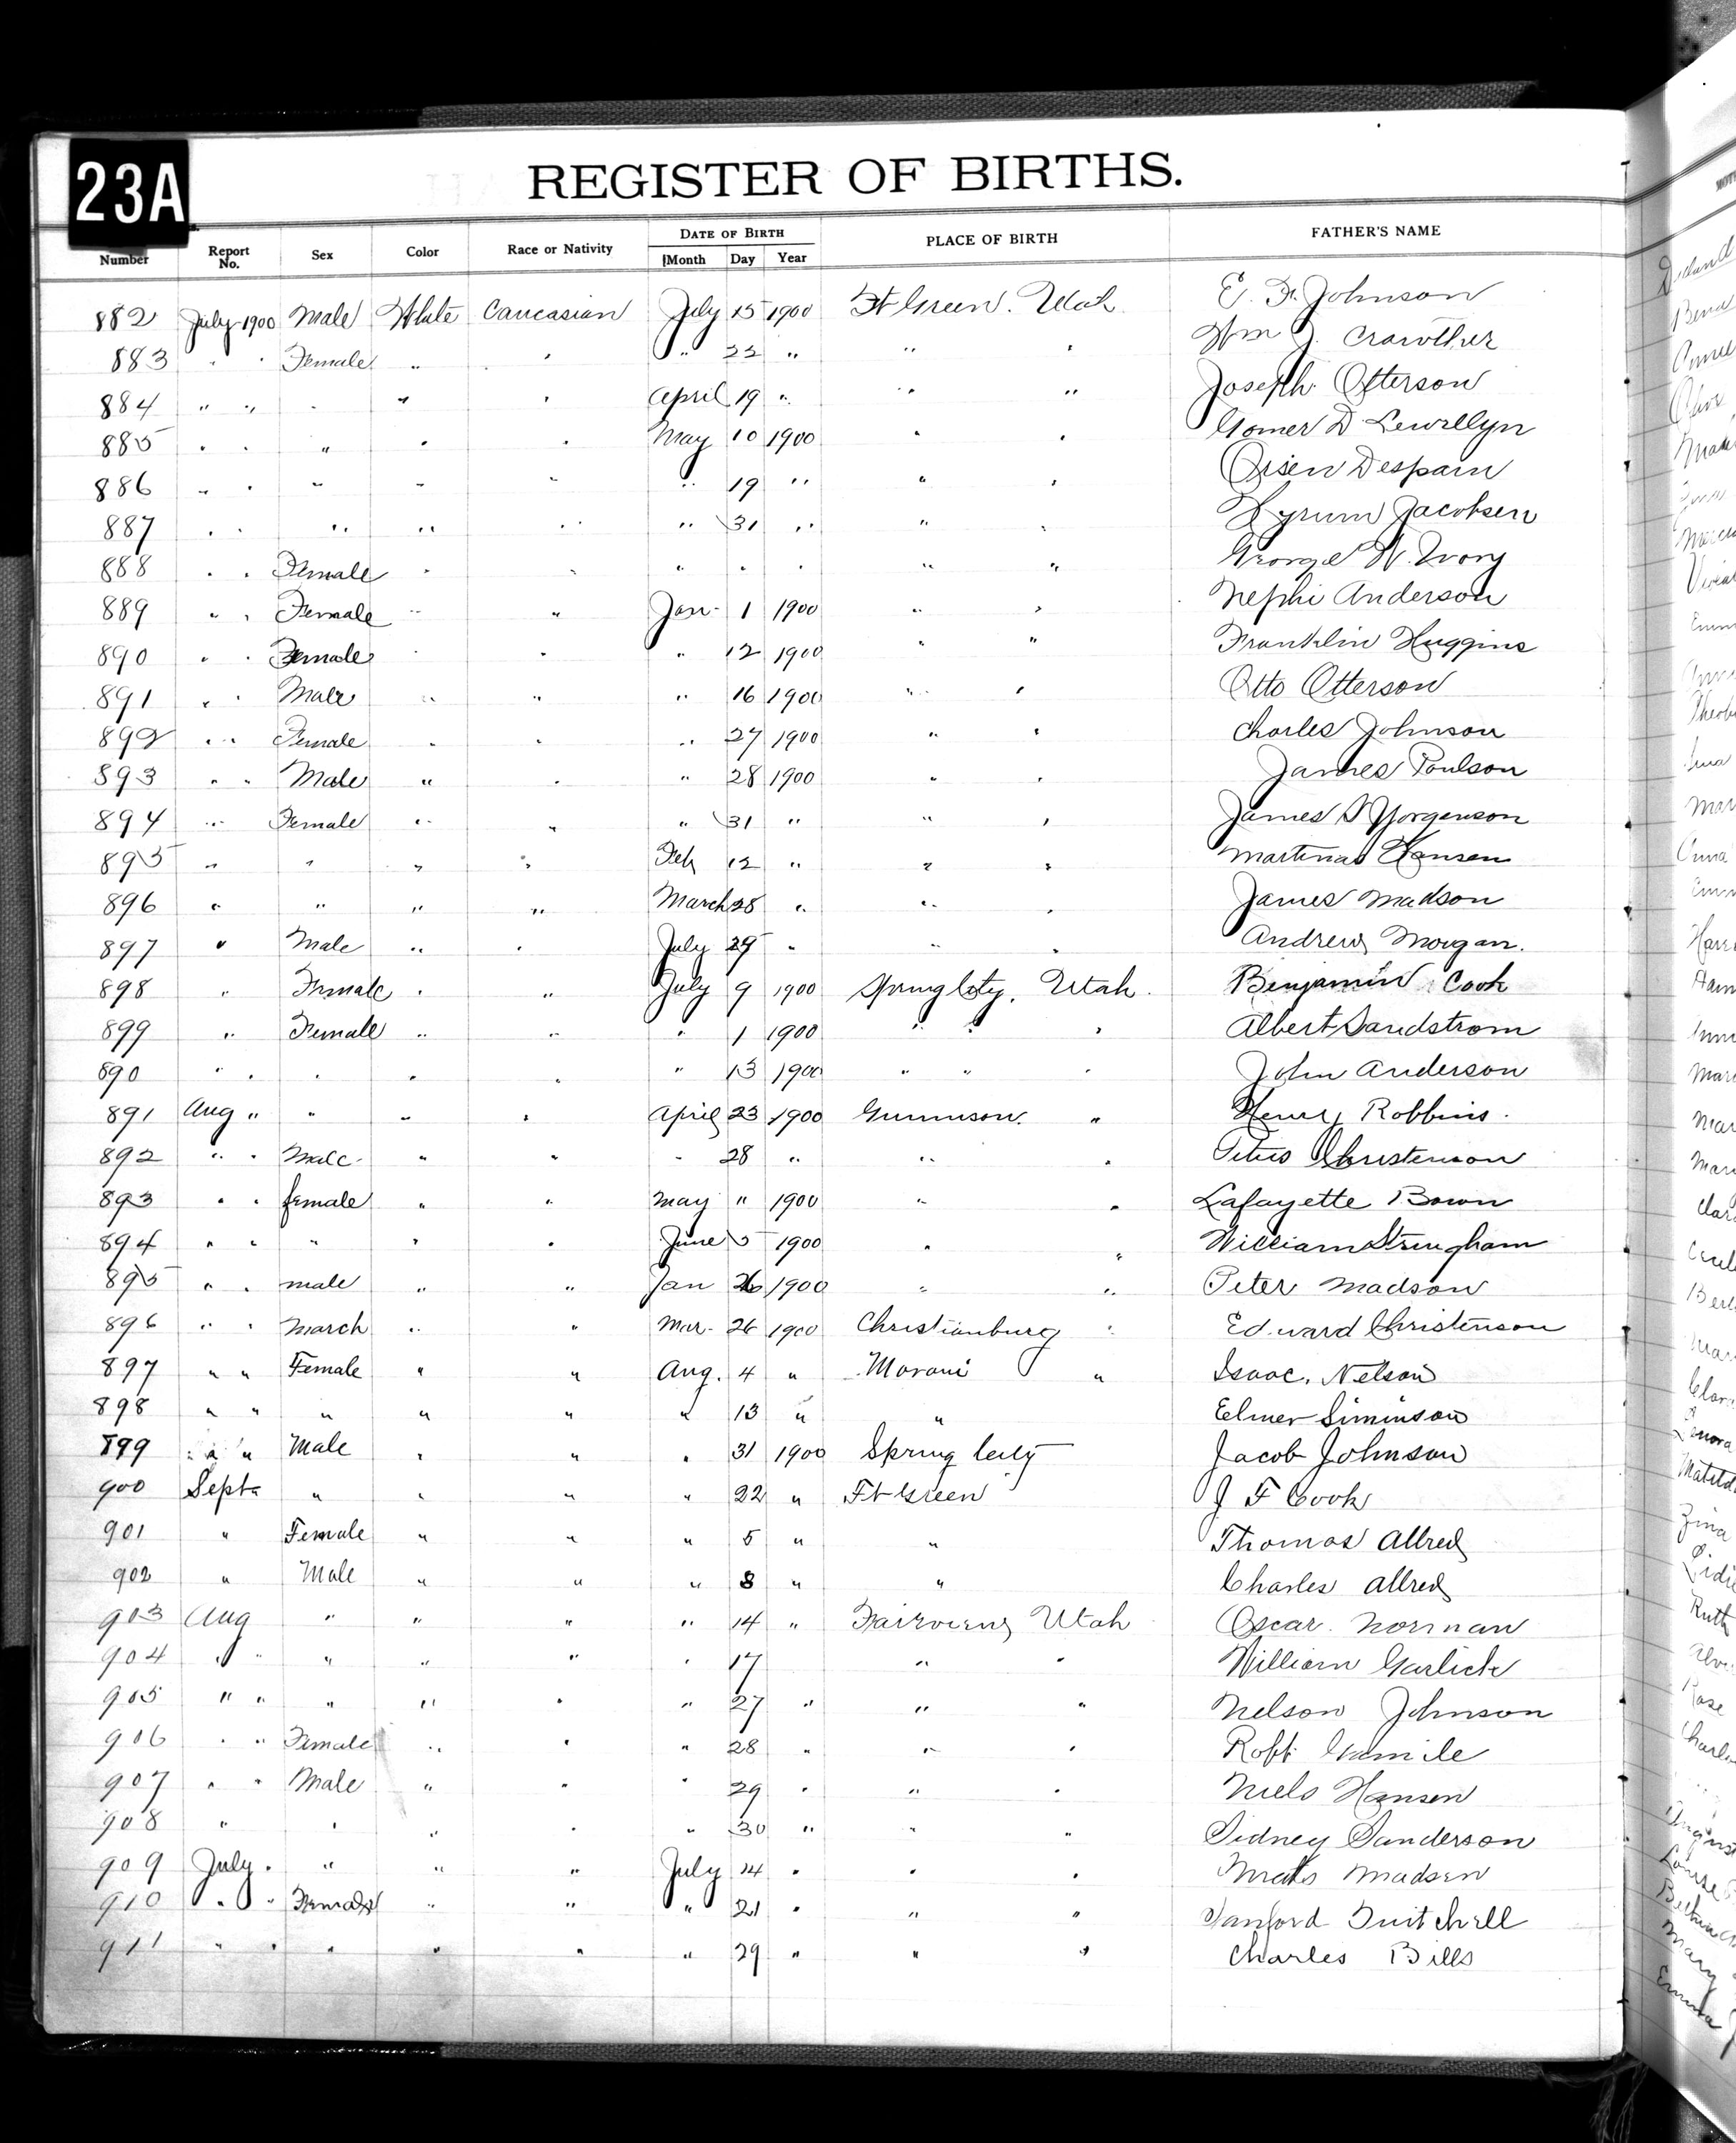 23A
REGISTER OF BIRTHS.
Number Report No. Sex Color Race or Nativity DATE OF BIRTH Month Day Year PLACE OF BIRTH FATHER'S NAME
882 July 1900 Male White Caucasian July 15 1900 Ft Green. Utah. E. F. Johnson
883 " " Female " " " 22 " " " Wm J. Crowther
884 " " " " " April 19 " " " Joseph Otterson
885 " " " " " May 10 1900 " " Gomer D Lewellyn
886 " " " " " " 19 " " " Orsen Despain
887 " " " " " " 31 " " " Hyrum Jacobsen
888 " " Female " " " " " " " George W. Ivory
889 " " Female " " Jan 1 1900 " " Nephi Anderson
890 " " Female " " " 12 1900 " " Franklin Huggins
891 " " Male " " " 16 1900 " " Otto Otterson
892 " " Female " " " 27 1900 " " Charles Johnson
893 " " Male " " " 28 1900 " " James Poulson
894 " " Female " " " 31 " " " James S Yorgenson
895 " " " " Feb 12 " " " Martinas Hansen
896 " " " " March 28 " " " James Madson
897 " Male " " July 29 " " " Andrew Morgan.
898 " Female " " July 9 1900 Spring City, Utah. Benjamin Cook
899 " Female " " " 1 1900 " " " Albert Sandstrom
890 " " " " " " 13 1900 " " " John Anderson
891 Aug " " " " April 23 1900 Gunnison. " Henry Robbins.
892 " " Male " " " 28 " " " Christenson
893 " " female " " May " 1900 " " Lafayette Bown
894 " " " " " June 5 1900 " " William Stringham
895 " " male " " Jan 26 1900 " " Peter Madson
896 " " March " " Mar. 26 1900 Christianburg " Edward Christenson
897 " " Female " " Aug. 4 " Moroni " Isaac. Nelson
898 " " " " " " 13 " " Elmer Siminson
899 " " Male " " " 31 1900 Spring City Jacob Johnson
900 Sept " " " " " 22 " Ft Green J F Cook
901 " Female " " " 5 " " Thomas Allred
902 " Male " " " 8 " " Charles Allred
903 Aug " " " " 14 " Fairview, Utah Oscar. Norman
904 " " " " " " 17 " " William Garlick
905 " " " " " " 27 " " " Nelson Johnson
906 " " Female " " " 28 " " " Robt.
907 " " Male " " " 29 " " " Niels Hansen
908 " " " " " 30 " " " Sidney Sanderson
909 July " " " " July 14 " " " Madsen
910 " " Female " " " 21 " " " Sanford Tuitchell
911 " " " " " " 29 " " " Charles Bills